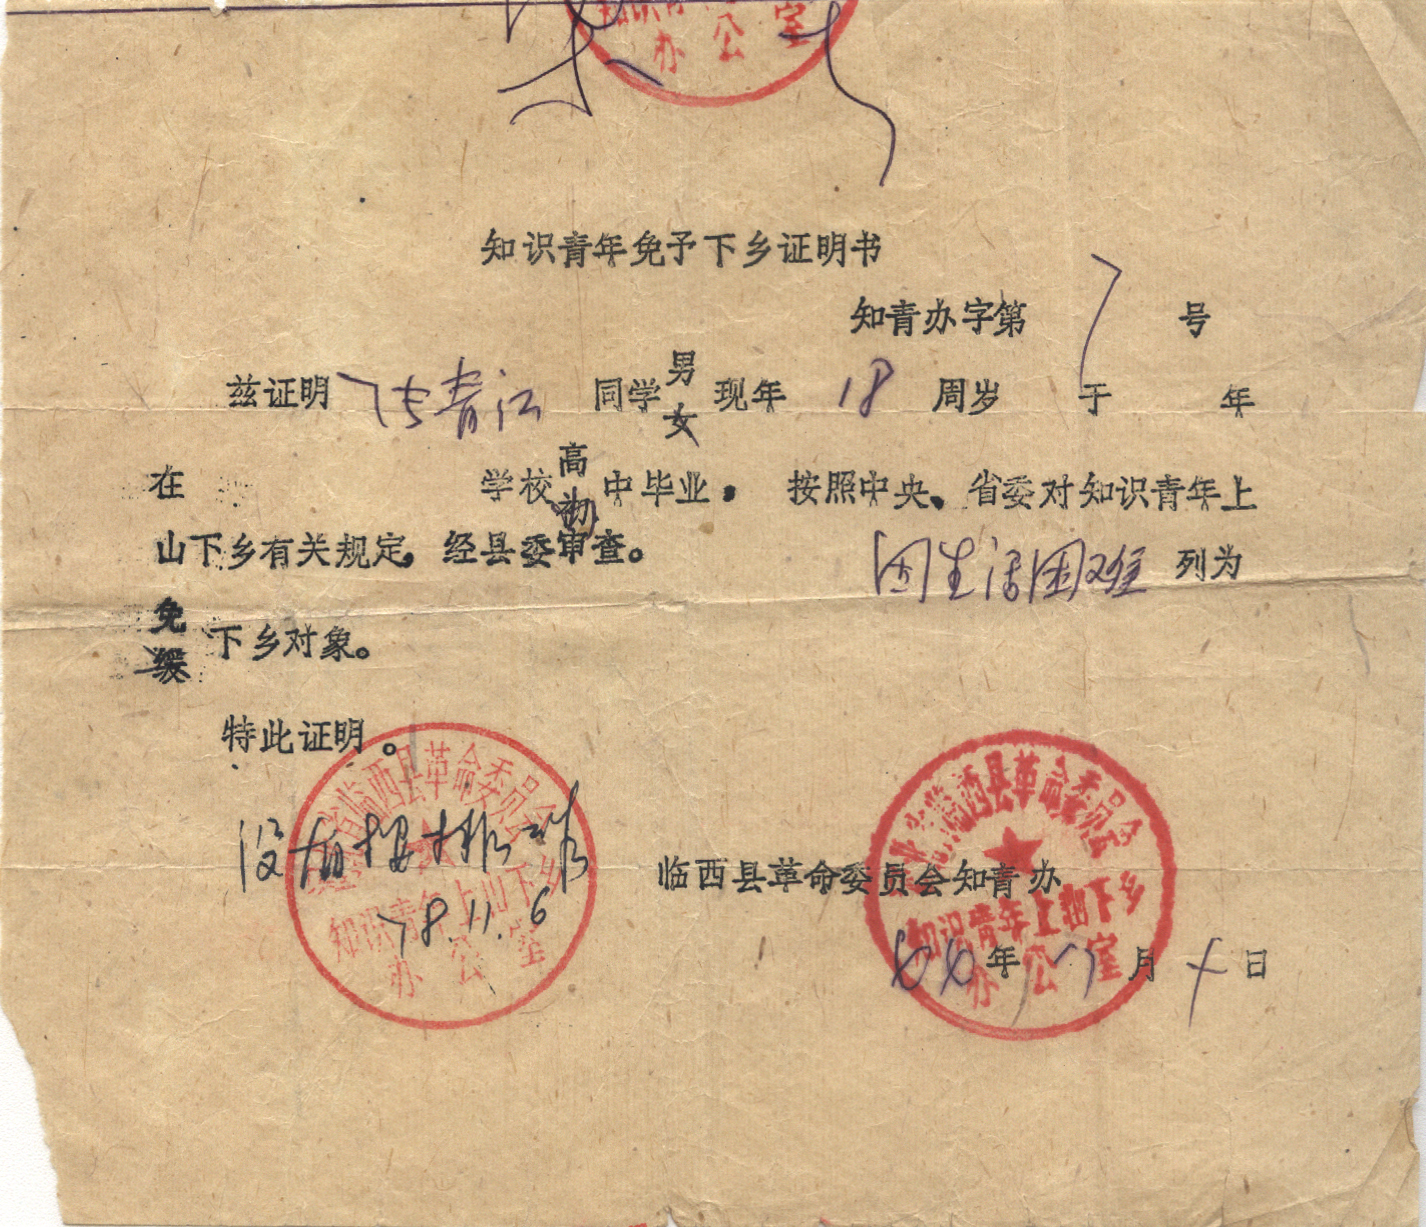 办公室
知识青年免予下乡证明书
知青办字第 7 号
兹证明 张青江 同学 男 女 现年 18 周岁 于 年
在 学校 高 初 中毕业。 按照中央、省委对知识青年上
山下乡有关规定，经县委审查。 因生活困难 列为
免 缓 下乡对象。
特此证明。
省临西县革命委员会
知识青年上山下乡
办公室
没有招
78.11.6
临西县革命委员会知青办
临西县革命委员会
知识青年上山下乡
办公室
年 月 日